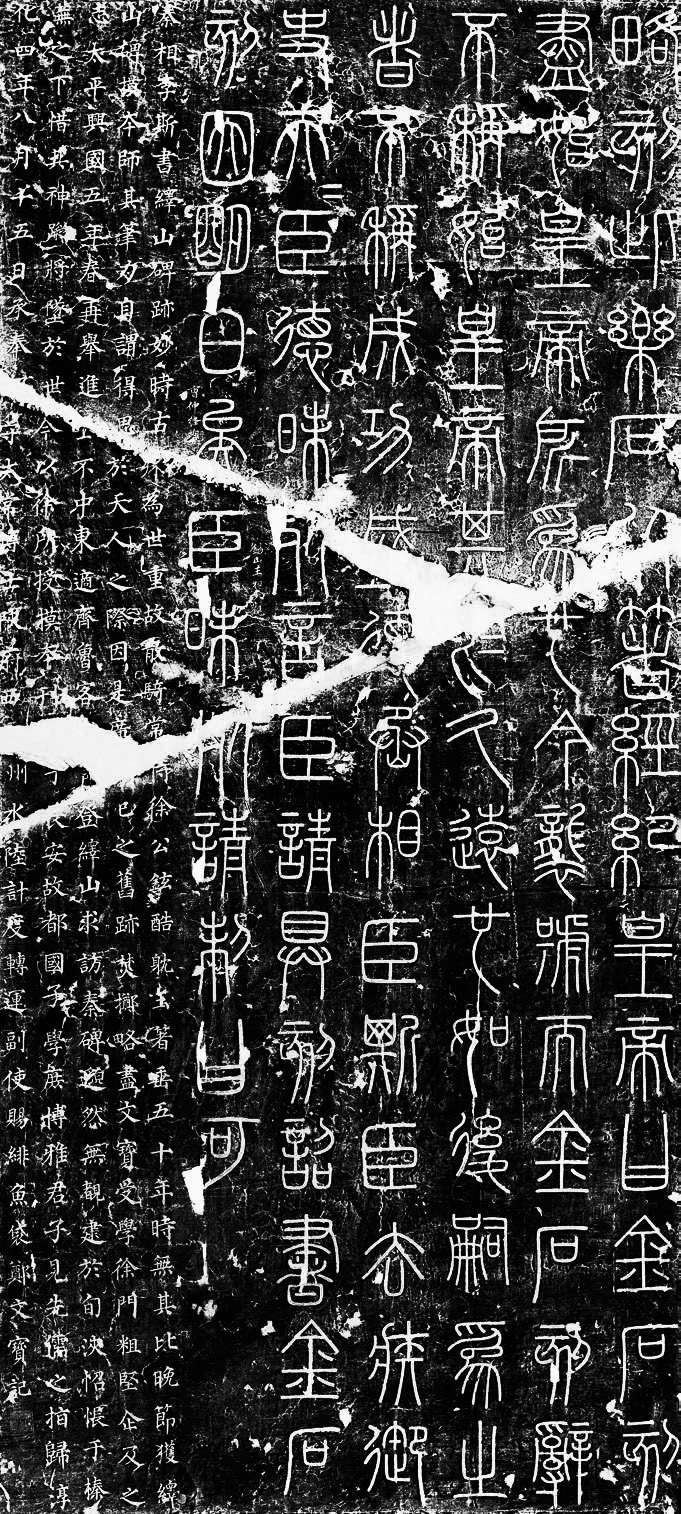 略刻此樂石以著經紀皇帝曰金石刻
盡始皇帝所為也今襲號而金石刻辭
不稱始皇帝其於久遠也如後嗣為之
者不稱成功盛德丞相臣斯臣去疾御
史夫=臣德昧死言臣請具刻詔書金石
刻因明白矣臣昧死請制曰可
秦相李斯書繹山碑跡妙時古殊為世重故散騎常侍徐公鉉酷躭玉著垂五十年時無其比晚節獲繹
山碑摸本師其筆力自謂得思於天人之際因是廣己之舊跡焚擲略盡文寶受學徐門粗堅企及之
志太平興國五年春再舉進士不中東適齊魯客邑登繹山求訪秦碑邈然無覩逮於旬浹怊悵于榛
蕪之下惜其神蹤將墜於世今以徐所授摸本刊于長安故都國子學庶博雅君子見先儒之指歸淳
化四年八月十五日承奉郎守太常博士陝府西州水陸計度轉運副使賜緋魚袋鄭文寶記